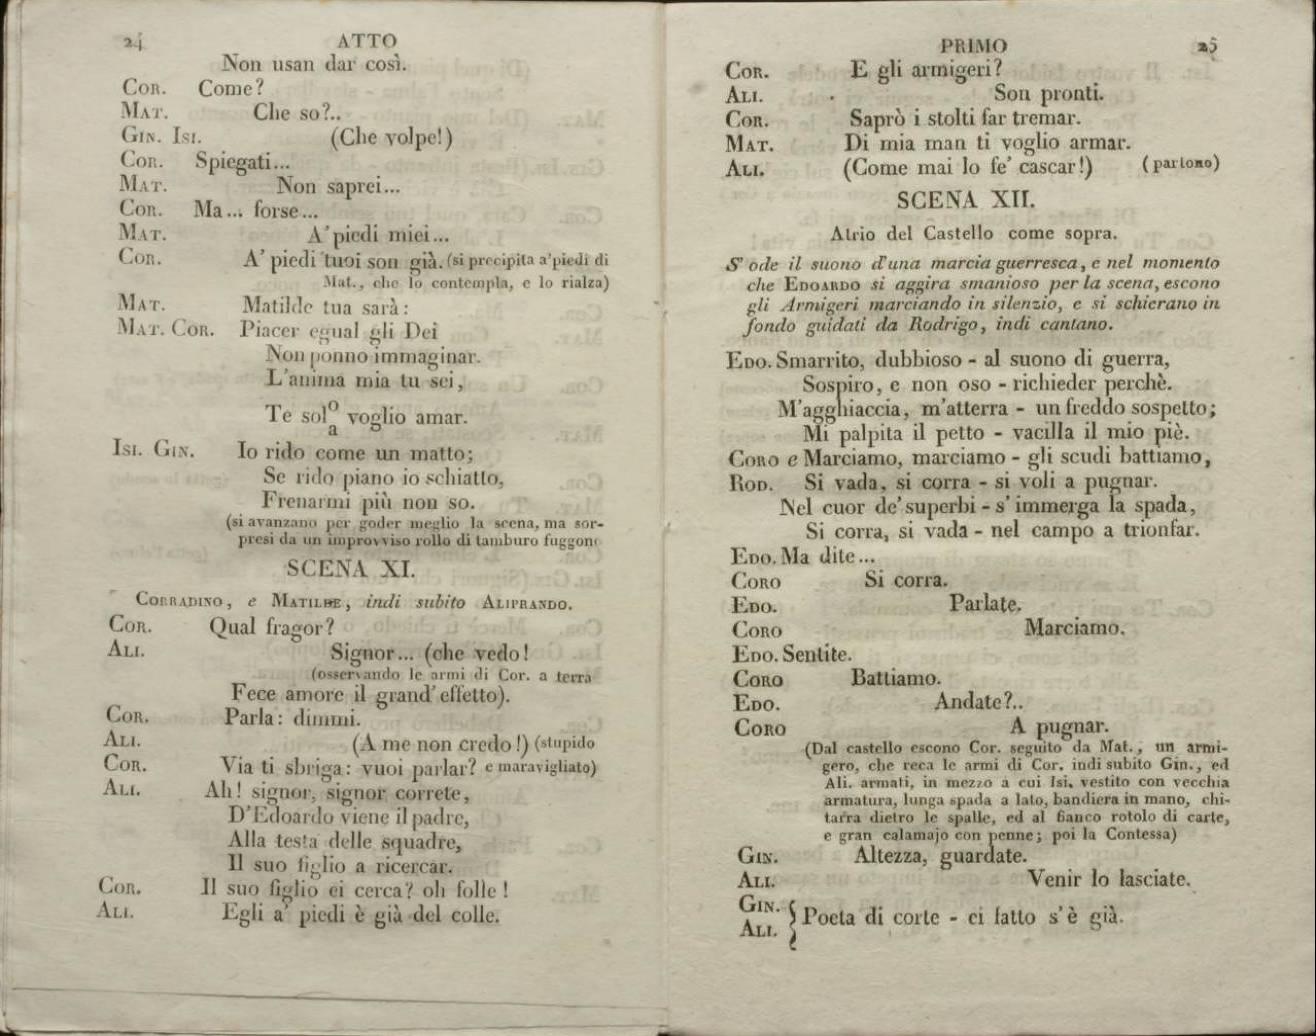 24 ATTO
Non usan dar così.
COR. Come?
MAT. Che so?..
GIN. ISI. (Che volpe!)
COR. Spiegati...
MAT. Non saprei...
COR. Ma... forse...
MAT. A' piedi miei...
COR. A' piedi tuoi son già. (si precipita a' piedi di
Mat., che lo contempla, e lo rialza)
MAT. Matilde tua sarà:
MAT. COR. Piacer egual gli Dei
Non ponno immaginar.
L'anima mia tu sei,
Te sol o/a voglio amar.
ISI. GIN. Io rido come un matto;
Se rido piano io schiatto,
Frenarmi più non so.
(si avanzano per goder meglio la scena, ma sor-
presi da un improvviso rollo di tamburo fuggono
SCENA XI.
CORRADINO, e MATILDE, indi subito ALIPRANDO.
COR. Qual fragor?
ALI. Signor... (che vedo!
(osservando le armi di Cor. a terra
Fece amore il grand' effetto).
COR. Parla: dimmi.
ALI. (A me non credo!) (stupido
COR. Via ti sbriga: vuoi parlar? e maravigliato)
ALI. Ah! signor, signor correte,
D'Edoardo viene il padre,
Alla testa delle squadre,
Il suo figlio a ricercar.
COR. Il suo figlio ei cerca? oh folle!
ALI. Egli a' piedi è già del colle.
PRIMO 25
COR. E gli armigeri?
ALI. Son pronti.
COR. Saprò i stolti far tremar.
MAT. Di mia man ti voglio armar.
ALI. (Come mai lo fe' cascar!) (partono)
SCENA XII.
Atrio del Castello come sopra.
S' ode il suono d'una marcia guerresca, e nel momento
che EDOARDO si aggira smanioso per la scena, escono
gli Armigeri marciando in silenzio, e si schierano in
fondo guidati da Rodrigo, indi cantano.
EDO. Smarrito, dubbioso - al suono di guerra,
Sospiro, e non oso - richieder perchè.
M'agghiaccia, m'atterra - un freddo sospetto;
Mi palpita il petto - vacilla il mio piè.
CORO e Marciamo, marciamo - gli scudi battiamo,
ROD. Si vada, si corra - si voli a pugnar.
Nel cuor de' superbi - s' immerga la spada,
Si corra, si vada - nel campo a trionfar.
EDO. Ma dite...
CORO Si corra.
EDO. Parlate.
CORO Marciamo.
EDO. Sentite.
CORO Battiamo.
EDO. Andate?..
CORO A pugnar.
(Dal castello escono Cor. seguito da Mat., un armi-
gero, che reca le armi di Cor. indi subito Gin., ed
Ali. armati, in mezzo a cui Isi. vestito con vecchia
armatura, lunga spada a lato, bandiera in mano, chi-
tarra dietro le spalle, ed al fianco rotolo di carte,
e gran calamajo con penne; poi la Contessa)
GIN. Altezza, guardate.
ALI. Venir lo lasciate.
GIN. ALI. { Poeta di corte - ei fatto s'è già.